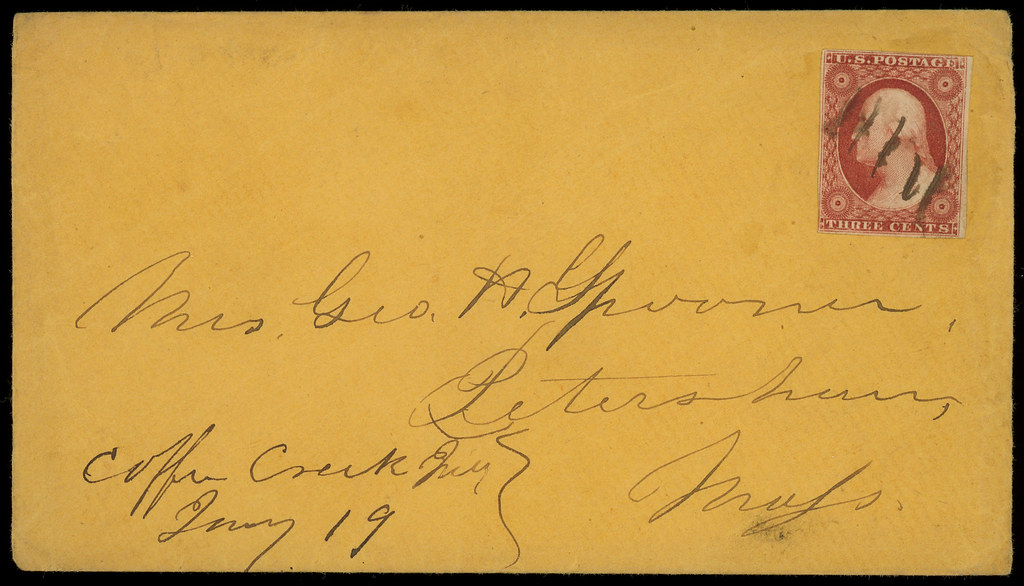 U.S. POSTAGE
THREE CENTS
Mrs. Geo. H. Spooner,
Petersham,
Mass.
Coffee Creek
Jany 19